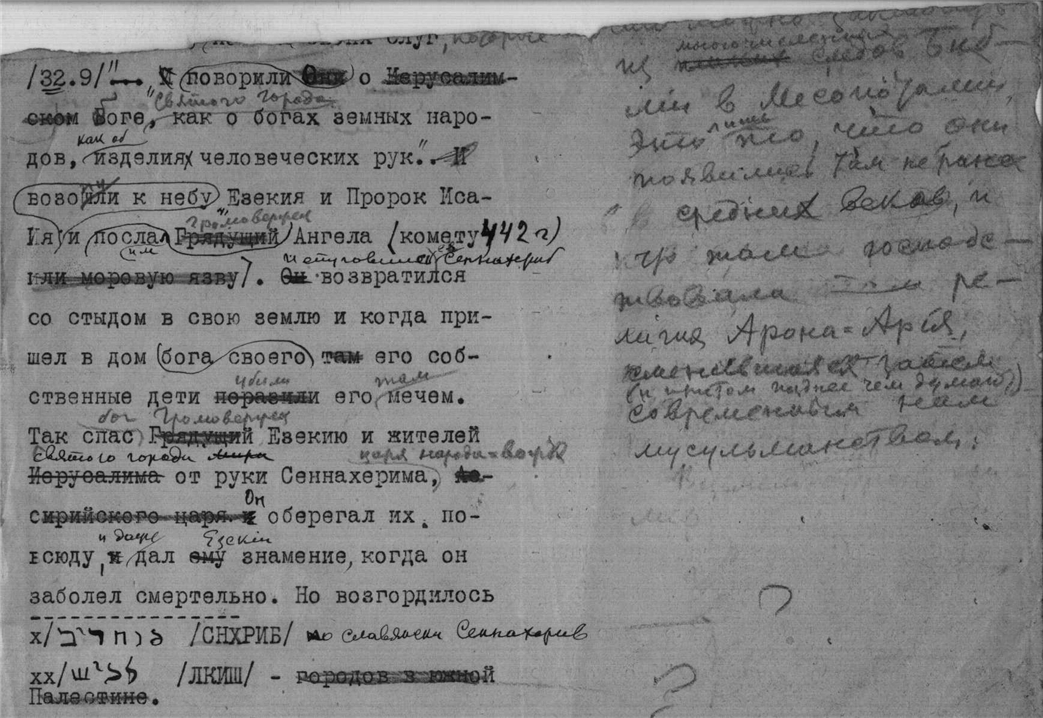 слуг, которые
/32.9/" — И говорили Они о Иерусалим-
"Святого города
ском Боге, как о богах земных наро-
как об
дов, изделиях человеческих рук". И
возопили к небу Езекия и Пророк Иса-
Громовержец
Ия и послал Грядущий Ангела (комету 442 г)
им
и отступивши Сеннахериб
или моровую язву). Он возвратился
со стыдом в свою землю и когда при-
шел в дом бога своего там его соб-
убили там
ственные дети поразили его мечем.
бог Громовержец
Так спас Грядущий Езекию и жителей
Святого города мира царя народа=
Иерусалима от руки Сеннахерима, Ас-
Он
сирийского царя и оберегал их по-
и даже Езекии
всюду, и дал ему знамение, когда он
заболел смертельно. Но возгордилось
х/ סנחריב /СНХРИБ/ по славянски Сеннахерив
хх/ לכיש /ЛКИШ/ - городов в южной
Палестине.
многочисленных
из следов Биб-
лии в Месопотамии,
лишь
Это то, что они
появились там не ранее
средних веков, и
что там господс-
твовала ре-
лигия Арона=Ария,
сменившаяся затем
(и притом позднее чем думают)
современным нам
мусульманством.